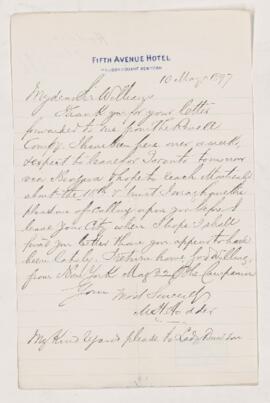 FIFTH AVENUE HOTEL
MADISON SQUARE NEW YORK
10 May 1897
My dear Sir William
Thank you for your letter
forwarded to me from the
I have been here over a week,
& expect to leave for Toronto tomorrow
via Niagara & hope to reach Montreal
about the 15th & trust I may have the
pleasure of calling upon you before I
leave your City when I hope I shall
find you better than you appear to have
been lately. I return home
from New York May 22 Campania
Yours Most Sincerely
My kind regards please to Lady Dawson